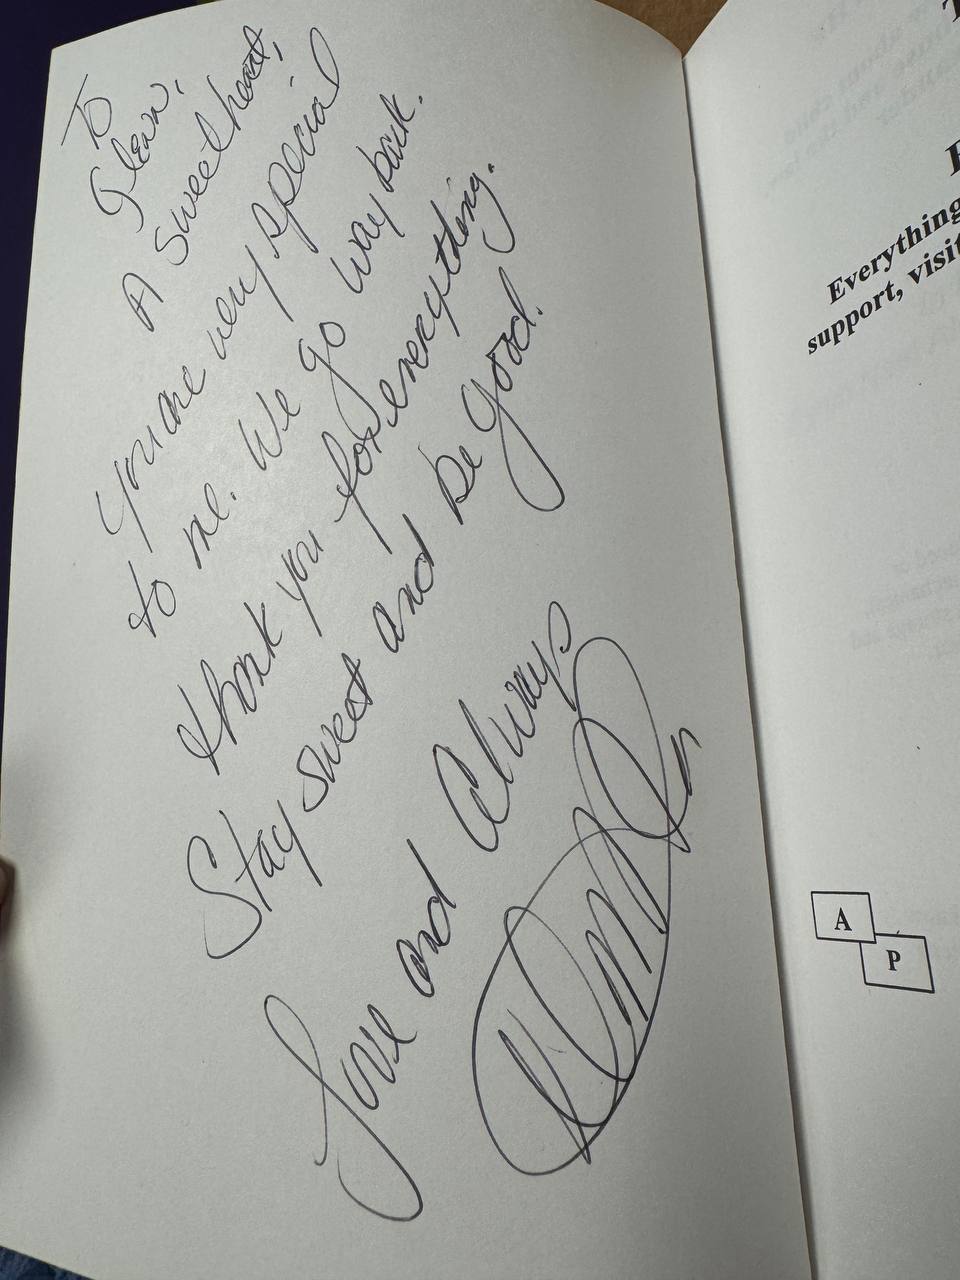 To
Glenn,
A sweetheart!
You are very special
to me. We go way back.
thank you for everything.
Stay sweet and be good.
Love and Always
Everything
support, visit
A
P